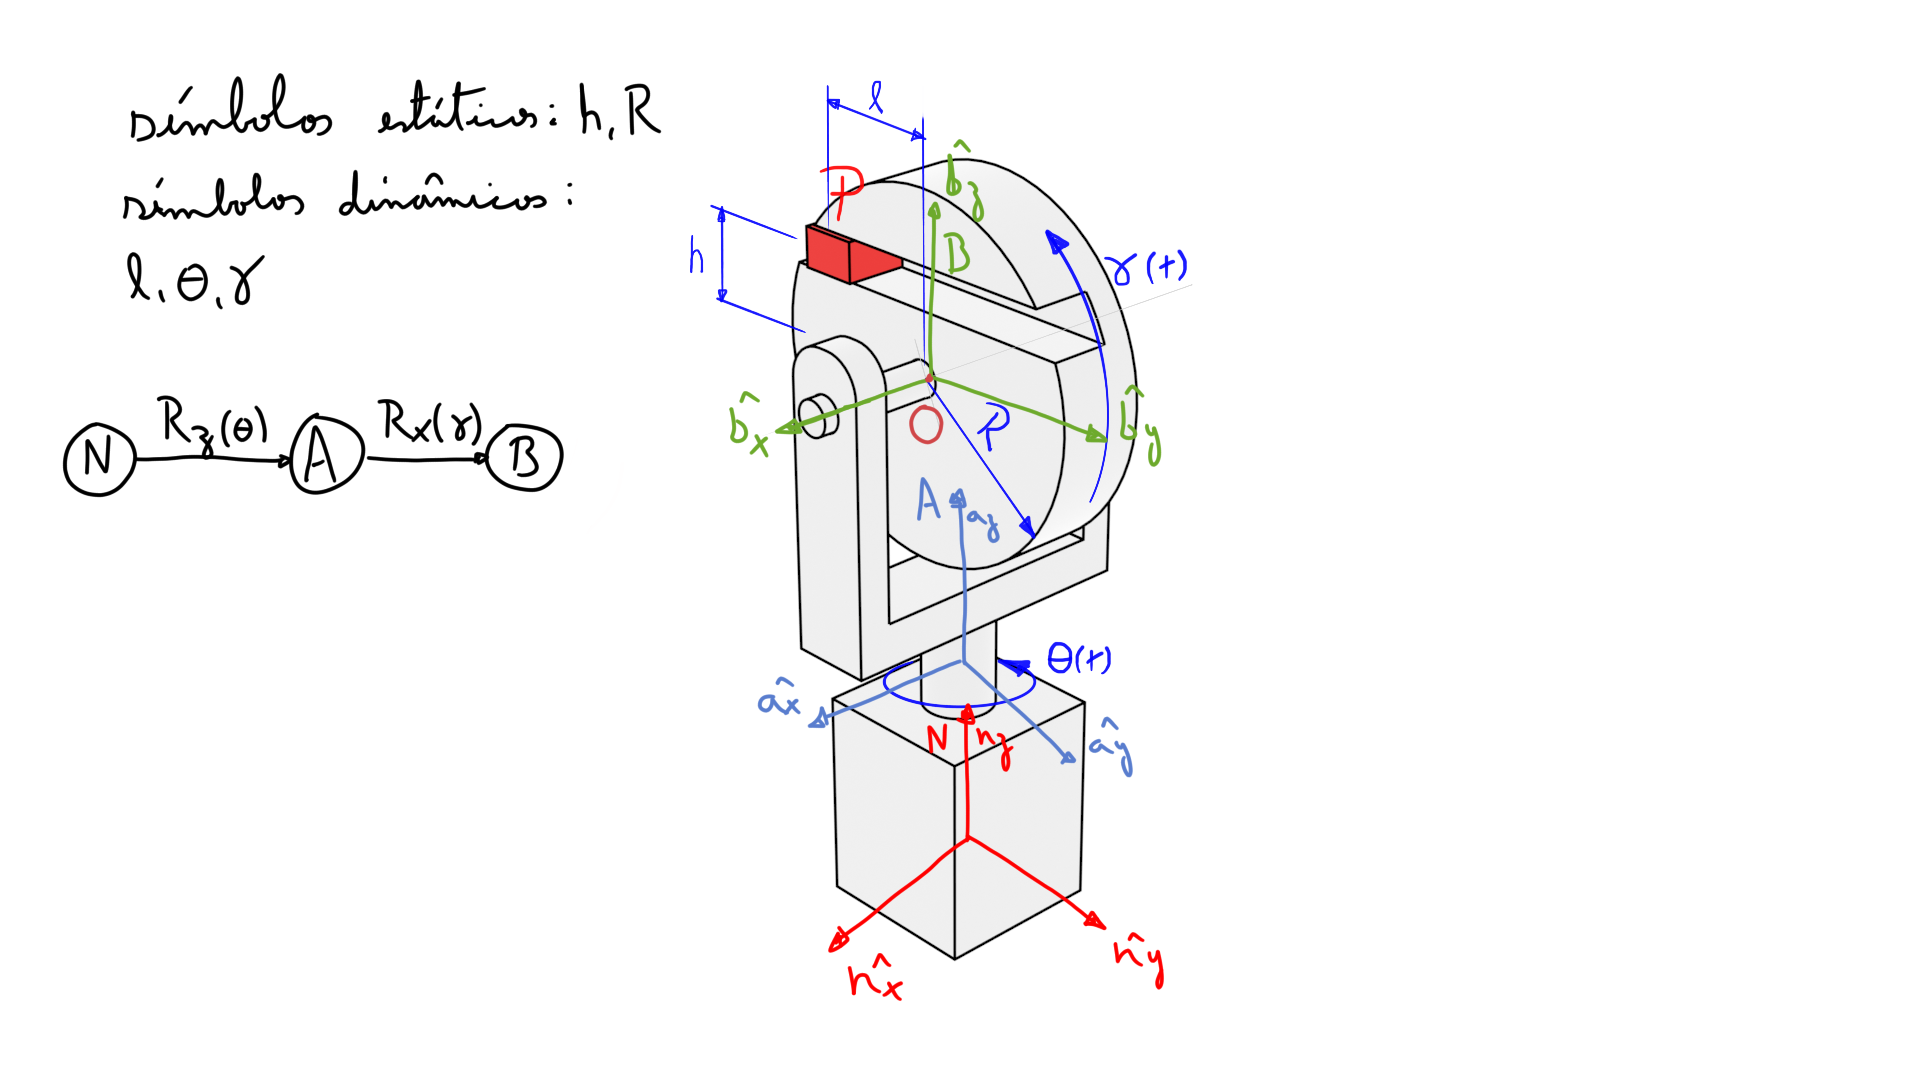 símbolos estáticos: h, R
símbolos dinâmicos:
l, θ, γ
N Rz(θ) A Rx(γ) B
l
P
b̂z
B
h
γ(t)
b̂x
O
R
b̂y
A
az
θ(t)
âx
N
nz
ây
n̂x
n̂y